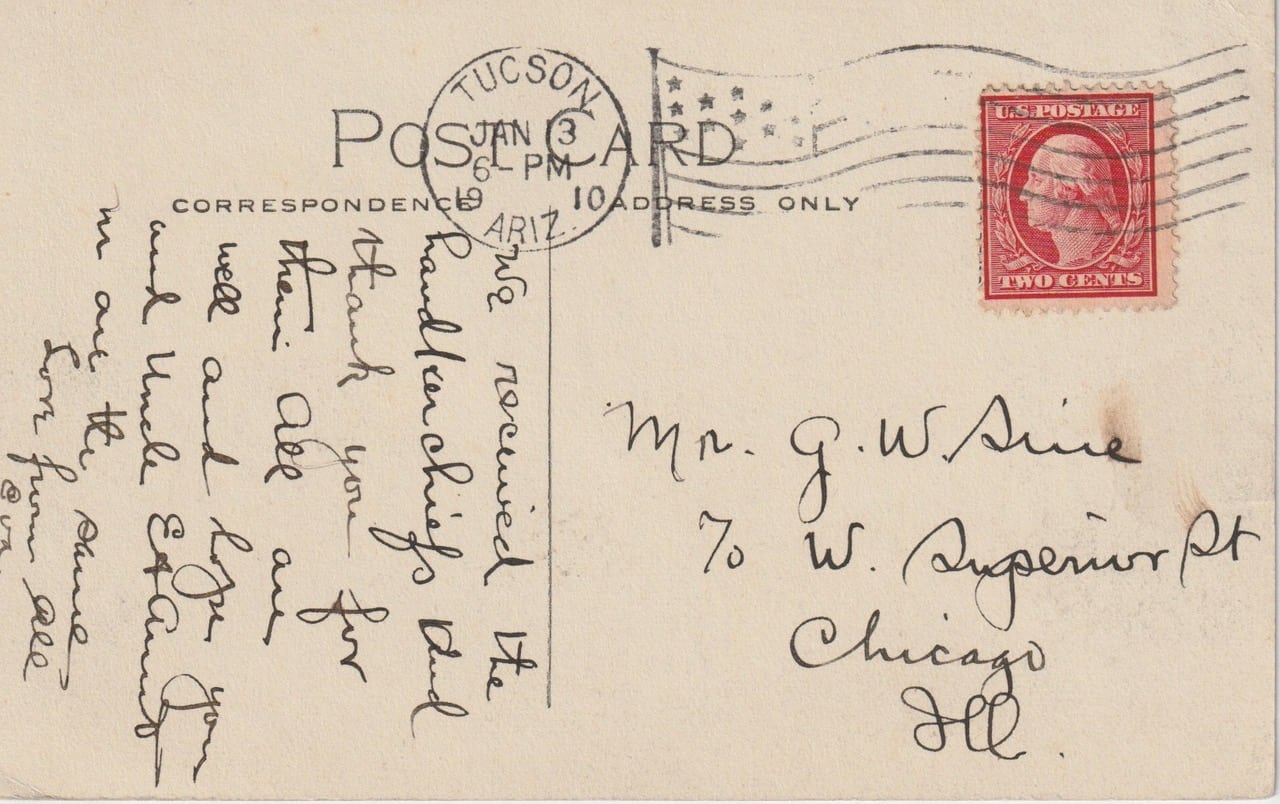 POST CARD
CORRESPONDENCE
ADDRESS ONLY
TUCSON,
JAN 3
6 - PM
19 10
ARIZ.
U.S. POSTAGE
TWO CENTS
We received the
handkerchiefs and
thank you for
them All are
well and hope you
and Uncle E & Aunt
m are the same
Love from all
Eva.
Mr. G. W. Sine
70 W. Superior St
Chicago
Ill.